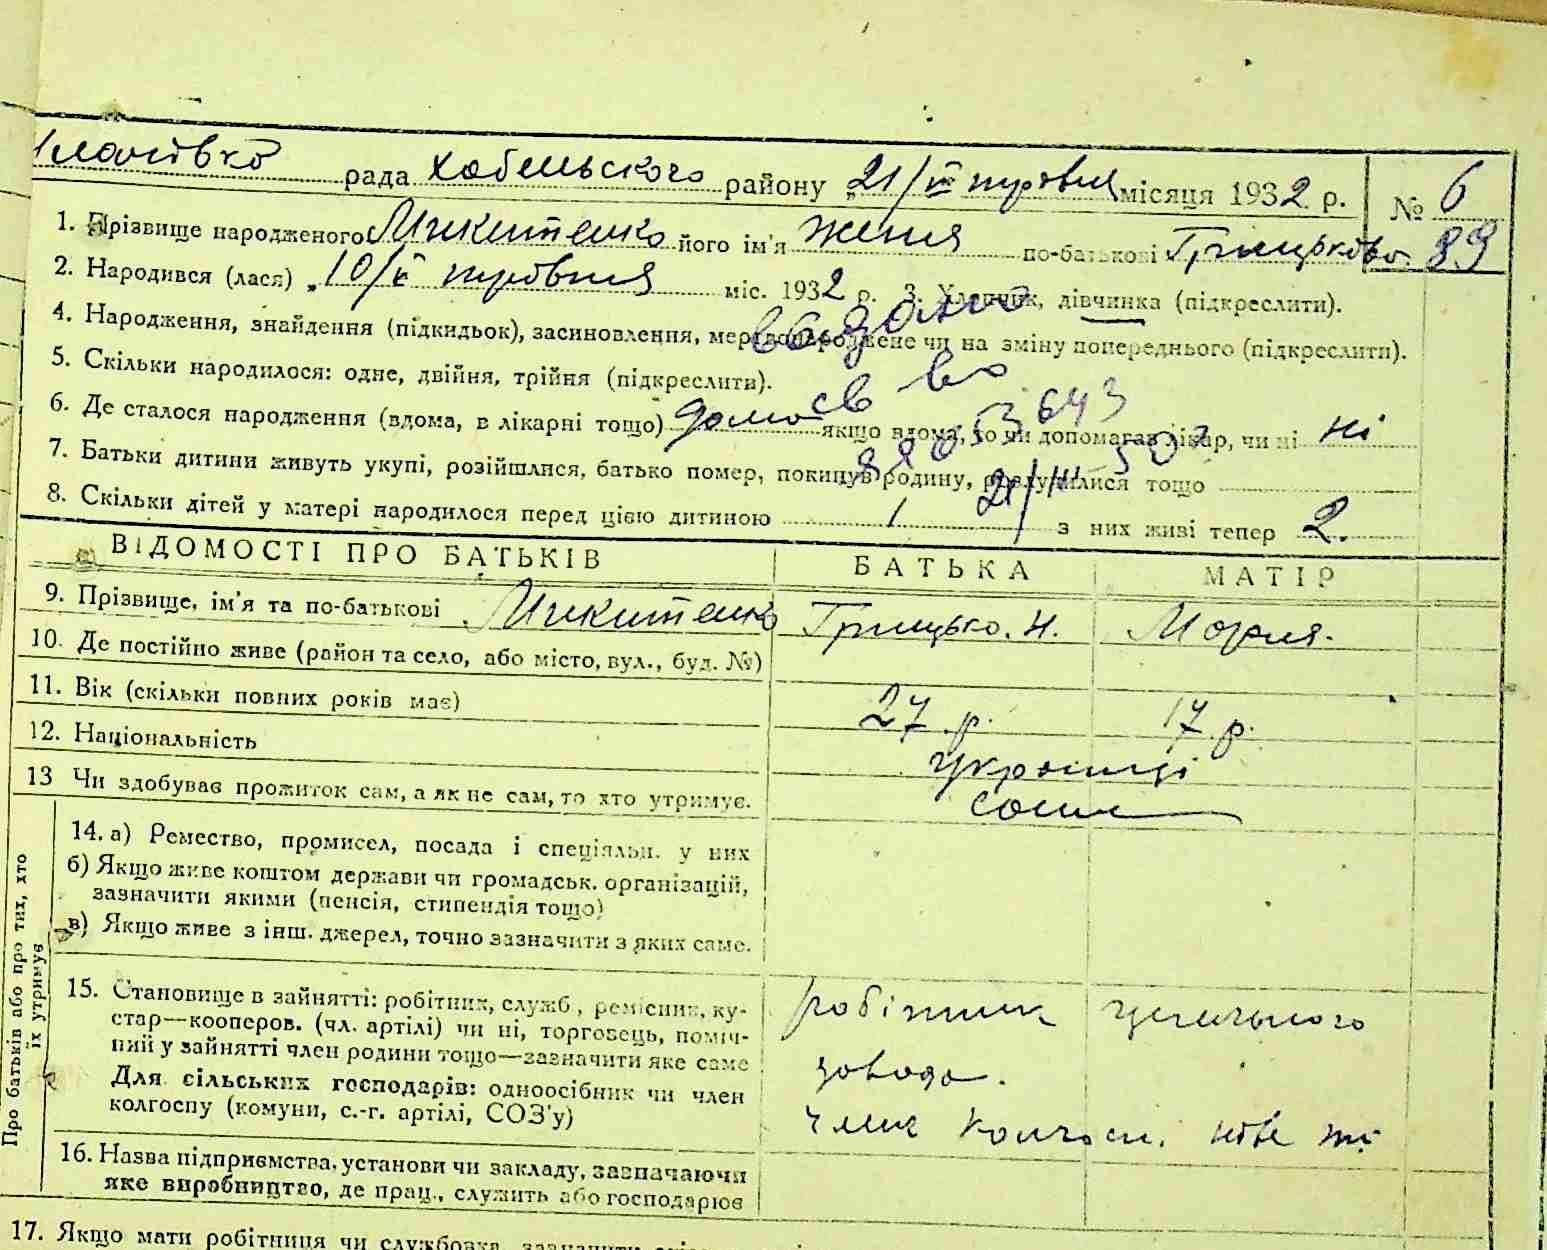 рада Хобельского району „21/V травня місяця 1932 р. № 6
1. Прізвище народженого Микитенко його ім'я Женя по-батькові Грицьково. 89
2. Народився (лася) „10/V травня міс. 1932 р. 3. Хлопчик, дівчинка (підкреслити).
4. Народження, знайдення (підкидьок), засиновлення, мертвонароджене чи на зміну попереднього (підкреслити).
выдано
5. Скільки народилося: одне, двійня, трійня (підкреслити).
св во
6. Де сталося народження (вдома, в лікарні тощо) дома якщо вдома, то чи допомагав лікар, чи ні ні
7. Батьки дитини живуть укупі, розійшлися, батько помер, покинув родину, розлучилися тощо
8. Скільки дітей у матері народилося перед цією дитиною 1 з них живі тепер 2.
ВІДОМОСТІ ПРО БАТЬКІВ БАТЬКА МАТІР
9. Прізвище, ім'я та по-батькові Микитенко Грицько. Н. Мотря.
10. Де постійно живе (район та село, або місто, вул., буд. №)
11. Вік (скільки повних років має) 27 р. 17 р.
12. Національність українці
13 Чи здобуває прожиток сам, а як не сам, то хто утримує. сами
Про батьків або про тих, хто
їх утримує
14. а) Ремество, промисел, посада і спеціяльн. у них
б) Якщо живе коштом держави чи громадськ. організацій,
зазначити якими (пенсія, стипендія тощо)
в) Якщо живе з інш. джерел, точно зазначити з яких саме.
15. Становище в зайнятті: робітник, служб., ремісник, ку-
стар—кооперов. (чл. артілі) чи ні, торговець, поміч-
ний у зайнятті член родини тощо—зазначити яке саме
Для сільських господарів: одноосібник чи член
колгоспу (комуни, с.-г. артілі, СОЗ'у)
робітник цегельного
завода.
член колгосп.
16. Назва підприємства, установи чи закладу, зазначаючи
яке виробництво, де прац., служить або господарює
17. Якщо мати робітниця чи службовка, зазначити